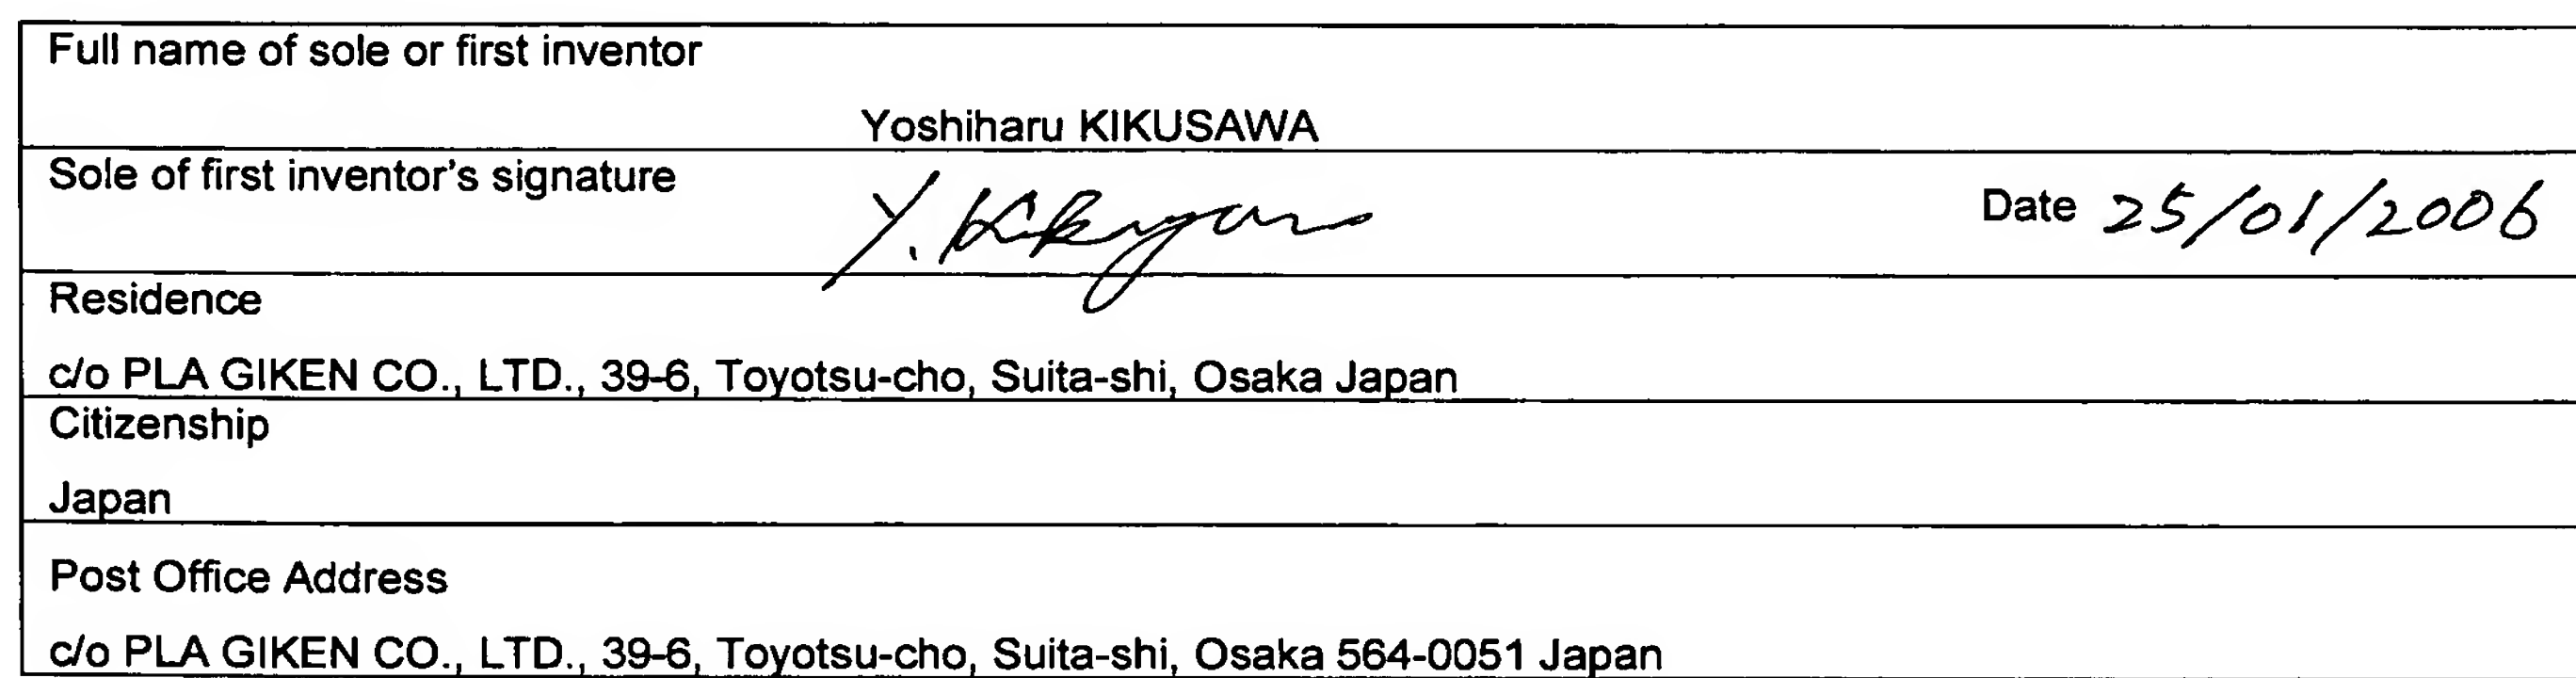 Full name of sole or first inventor
Yoshiharu KIKUSAWA
Sole of first inventor's signature
Date 25/01/2006
Residence
c/o PLA GIKEN CO., LTD., 39-6, Toyotsu-cho, Suita-shi, Osaka Japan
Citizenship
Japan
Post Office Address
c/o PLA GIKEN CO., LTD., 39-6, Toyotsu-cho, Suita-shi, Osaka 564-0051 Japan